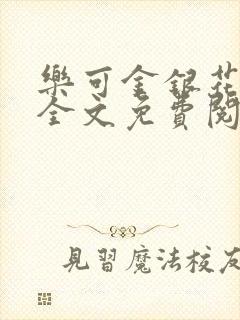 樂可金銀花
全文免費閱
見習魔法校友